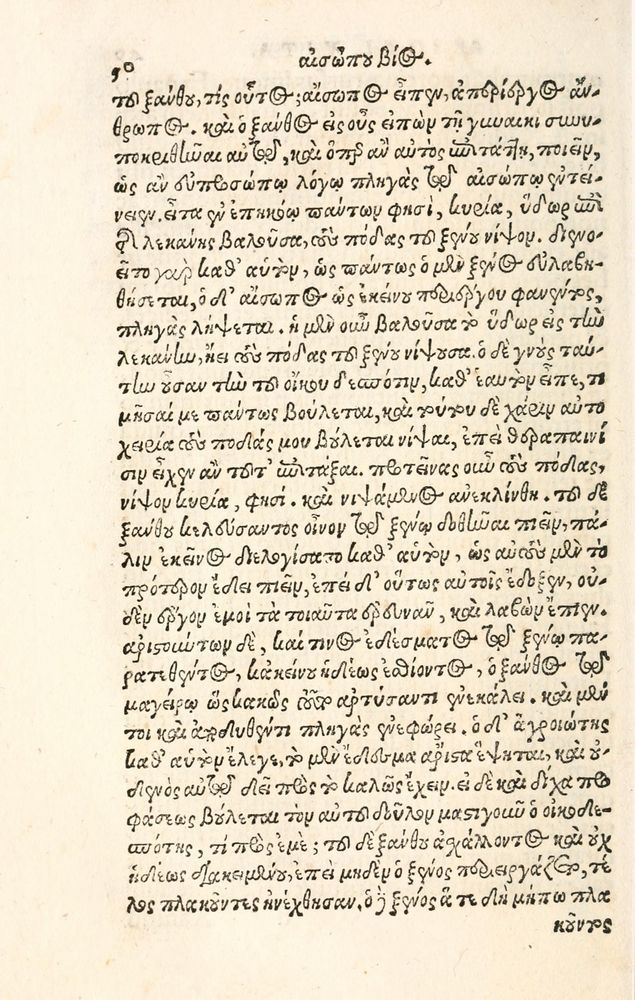 50 αἰσώπου βίος.
τοῦ ξάνθου, τίς οὗτος; αἴσωπος εἶπεν, ἀπερίεργος ἄν-
θρωπος. καὶ ὁ ξάνθος εἰς οὖς εἰπὼν τῇ γυναικὶ συνυ-
ποκριθῆναι αὐτῷ, καὶ ὅπερ ἂν αὐτὸς ἐπιτάτῃ, ποιεῖν,
ὡς ἂν εὐπροσώπῳ λόγῳ πληγὰς τῷ αἰσώπῳ ἐντεί-
νειεν. εἶτα ἐν ἐπηκόῳ πάντων φησὶ, κυρία, ὕδωρ ἐπὶ
τῆς λεκάνης βαλοῦσα, τοὺς πόδας τοῦ ξένου νίψον. διενο-
εῖτο γὰρ καθ' αὑτὸν, ὡς πάντως ὁ μὲν ξένος εὐλαβη-
θήσεται, ὁ δ' αἴσωπος ὡς ἐκείνου περιέργου φανέντος,
πληγὰς λήψεται. ἡ μὲν οὖν βαλοῦσα τὸ ὕδωρ εἰς τὴν
λεκάνην, ᾔει τοὺς πόδας τοῦ ξένου νίψουσα. ὁ δὲ γνοὺς ταύ-
την οὖσαν τὴν τοῦ οἴκου δεσπότιν, καθ' ἑαυτὸν εἶπε, τι
μῆσαί με πάντως βούλεται, καὶ τούτου δὲ χάριν αὐτο
χειρία τοὺς ποδάς μου βούλεται νίψαι, ἐπεὶ θεραπαινί
σιν εἶχεν ἂν τοῦτ' ἐπιτάξαι. προτείνας οὖν τοὺς πόδας,
νίψον κυρία, φησί. καὶ νιψάμενος ἀνεκλίνθη. τοῦ δὲ
ξάνθου κελεύσαντος οἶνον τῷ ξένῳ δοθῆναι πιεῖν, πά-
λιν ἐκεῖνος διελογίσατο καθ' αὑτὸν, ὡς αὐτοὺς μὲν τὸ
πρότερον ἔδει πιεῖν, ἐπεὶ δ' οὕτως αὐτοῖς ἔδοξεν, οὐ-
δὲν ἔργον ἐμοὶ τὰ τοιαῦτα ἐρευνᾶν, καὶ λαβὼν ἔπιεν.
ἀριστώντων δὲ, καί τινος ἐδέσματος τῷ ξένῳ πα-
ρατεθέντος, κἀκείνου ἡδέως ἐσθίοντος, ὁ ξάνθος τῷ
μαγείρῳ ὡς κακῶς τοῦτο ἀρτύσαντι ἐνεκάλει. καὶ μέν
τοι καὶ ἀποδυθέντι πληγὰς ἐνεφόρει. ὁ δ' ἀγροιώτης
καθ' αὑτὸν ἔλεγε, τὸ μὲν ἔδεσμα ἄριστα ἕψηται, καὶ οὐ-
δενὸς αὐτῷ δεῖ πρὸς τὸ καλῶς ἔχειν. εἰ δὲ καὶ δίχα προ
φάσεως βούλεται τὸν αὑτοῦ δοῦλον μαστιγοῦν ὁ οἰκοδε-
σπότης, τί πρὸς ἐμέ; τοῦ δὲ ξάνθου ἀσχάλλοντος καὶ οὐχ
ἡδέως διακειμένου, ἐπεὶ μηδὲν ὁ ξένος περιειργάζετο, τέ-
λος πλακοῦντες ἠνέχθησαν. ὁ δὲ ξένος ἅ τε δὴ μήπω πλα
κοῦντος